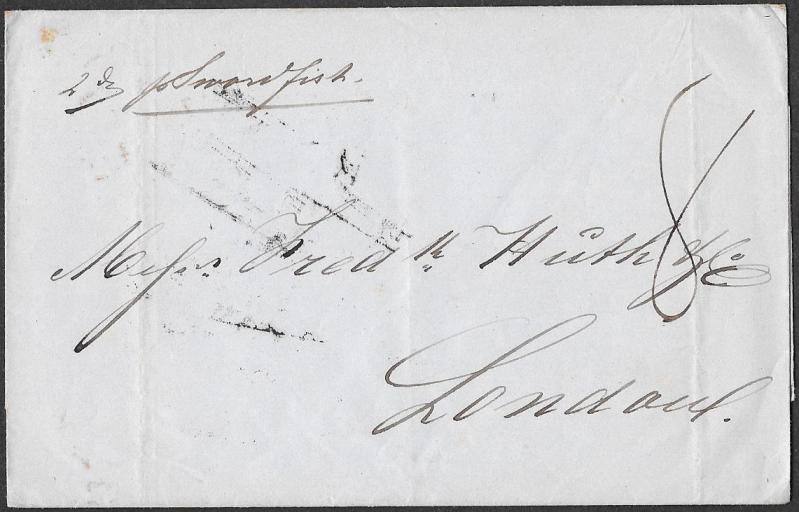 2do p Swordfish.
8
Messrs. Fredk Huth & Co
London.